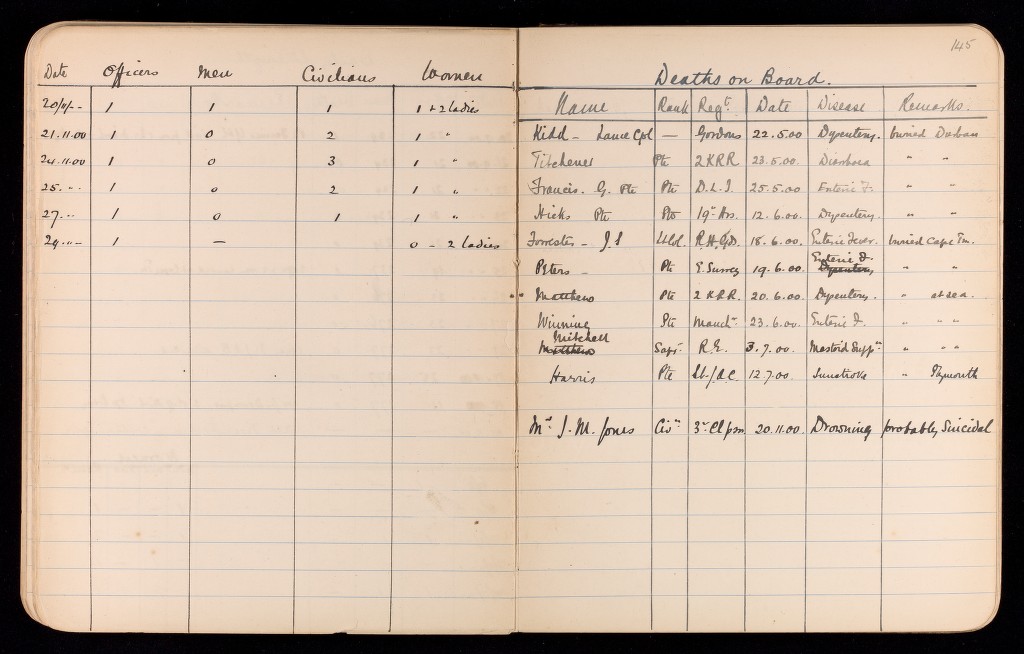 145
Date Officers Men Civilians Women
20/11/-- 1 1 1 1 + 2 ladies
21.11.00 1 0 2 1 "
24.11.00 1 0 3 1 "
25. " - 1 0 2 1 "
27. " - 1 0 1 1 "
29. " - 1 — 0 - 2 ladies
Deaths on Board.
Name Rank Regt. Date Disease Remarks.
Kidd - Lance Cpl — Gordons 22.5.00 Dysentery. buried Durban
Titchener Pte 2 KRR 23.5.00 Diarrhoea " "
Francis. G. Pte Pte D.L.I. 25.5.00 Enteric F. " "
Hicks Pte Pte 19th Hrs. 12.6.00. Dysentery. " "
Forrester - J.S Lt Col. 18.6.00. Enteric Fever. buried Cape Tn.
Peters - Pte E. Surrey 19.6.00. Enteric F. Dysentery " "
" " Matthews Pte 2 KRR. 20.6.00 Dysentery. " at sea.
Winning Pte Manchr. 23.6.00. Enteric F. " " "
Mitchell
Matthews Sapr. R.E. 3.7.00. Mastoid Suppn. " " "
Harris Pte 12.7.00. Sunstroke " Plymouth
Mr. J. M. Jones Civn. 3r Cl psn 20.11.00 Drowning probably Suicidal